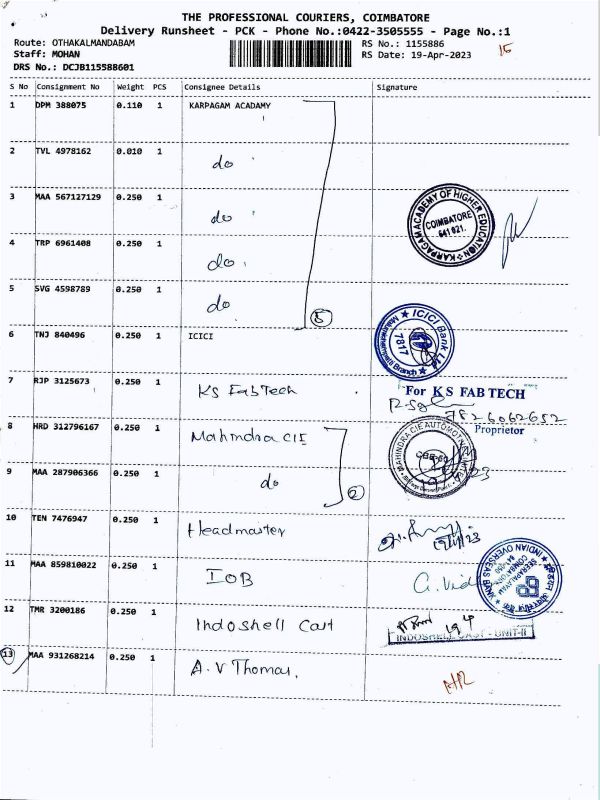 THE PROFESSIONAL COURIERS, COIMBATORE
Delivery Runsheet - PCK - Phone No.:0422-3505555 - Page No.:1
Route: OTHAKALMANDABAM RS No.: 1155886 15
Staff: MOHAN RS Date: 19-Apr-2023
DRS No.: DCJB115588601
S No Consignment No Weight PCS Consignee Details Signature
1 DPM 388075 0.110 1 KARPAGAM ACADAMY
2 TVL 4978162 0.010 1 do
3 MAA 567127129 0.250 1 do
KARPAGAM ACADEMY OF HIGHER EDUCATION
COIMBATORE
641 021.
4 TRP 6961408 0.250 1 do
5 SVG 4598789 0.250 1 do 5
6 TNJ 840496 0.250 1 ICICI
ICICI Bank Ltd
7817
Branch
7 RJP 3125673 0.250 1 KS FabTech
For K S FAB TECH
7826062652
Proprietor
8 HRD 312796167 0.250 1 Mahindra CIE
MAHINDRA CIE AUTOMOTIVE
9 MAA 287906366 0.250 1 do 2
10 TEN 7476947 0.250 1 Headmaster
11 MAA 859810022 0.250 1 IOB G. Vid
INDIAN OVERSEAS BANK
12 TMR 3200186 0.250 1 Indoshell Cast 19/4
INDOSHELL CAST - UNIT-II
13 MAA 931268214 0.250 1 A.V Thomas.